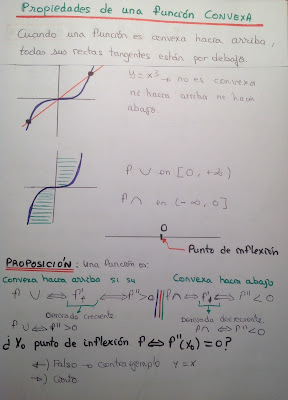 Propiedades de una función CONVEXA
Cuando una función es convexa hacia arriba,
todas sus rectas tangentes están por debajo.
y = x³ → no es convexa
ni hacia arriba ni hacia
abajo.
f ∪ en [0, +∞)
f ∩ en (-∞, 0]
0
Punto de inflexión
PROPOSICIÓN: Una función es:
Convexa hacia arriba si su
Convexa hacia abajo
f ∪ ⟺ f'↑ ⟺ f''>0
f ∩ ⟺ f'↓ ⟺ f''<0
Derivada creciente
Derivada decreciente
f ∪ ⟺ f''>0
f ∩ ⟺ f''<0
¿ X₀ punto de inflexión f ⟺ f''(x₀) = 0?
←) Falso → contraejemplo y = x
→) Cierto